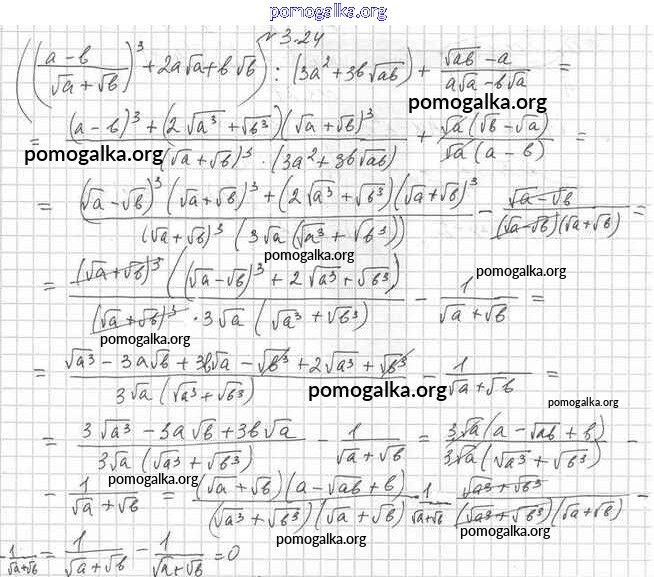 pomogalka.org
№3.24
((a-b / √a+√b)³ + 2a√a + b√b) : (3a² + 3b√ab) + √ab - a / a√a - b√a =
pomogalka.org
= (a-b)³ + (2√a³ + √b³)(√a + √b)³ / (√a + √b)³ · (3a² + 3b√ab) + √a(√b - √a) / √a(a - b) =
pomogalka.org
= (√a - √b)³ (√a + √b)³ + (2√a³ + √b³)(√a + √b)³ / (√a + √b)³ (3√a(√a³ + √b³)) - √a - √b / (√a - √b)(√a + √b) =
pomogalka.org
pomogalka.org
= (√a + √b)³ ((√a - √b)³ + 2√a³ + √b³) / (√a + √b)³ · 3√a (√a³ + √b³) - 1 / √a + √b =
pomogalka.org
= √a³ - 3a√b + 3b√a - √b³ + 2√a³ + √b³ / 3√a (√a³ + √b³) - 1 / √a + √b =
pomogalka.org
pomogalka.org
= 3√a³ - 3a√b + 3b√a / 3√a (√a³ + √b³) - 1 / √a + √b = 3√a (a - √ab + b) / 3√a (√a³ + √b³) -
- 1 / √a + √b = (√a + √b)(a - √ab + b) / (√a³ + √b³)(√a + √b) - 1 / √a + √b = √a³ + √b³ / (√a³ + √b³)(√a + √b) -
pomogalka.org
pomogalka.org
- 1 / √a + √b = 1 / √a + √b - 1 / √a + √b = 0